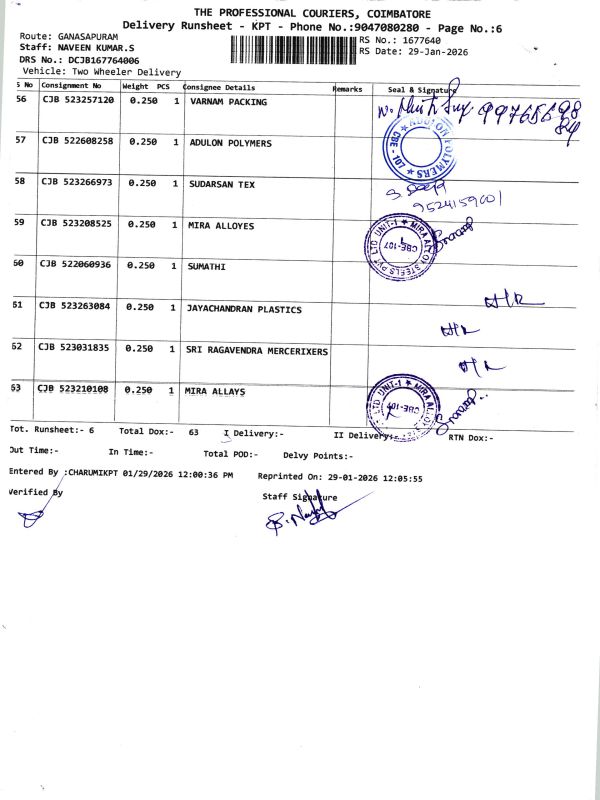 THE PROFESSIONAL COURIERS, COIMBATORE
Delivery Runsheet - KPT - Phone No.:9047080280 - Page No.:6
Route: GANASAPURAM
RS No.: 1677640
Staff: NAVEEN KUMAR.S
RS Date: 29-Jan-2026
DRS No.: DCJB167764006
Vehicle: Two Wheeler Delivery
S No Consignment No Weight PCS Consignee Details Remarks Seal & Signature
56 CJB 523257120 0.250 1 VARNAM PACKING
57 CJB 522608258 0.250 1 ADULON POLYMERS
ADULON POLYMERS CBE - 107
58 CJB 523266973 0.250 1 SUDARSAN TEX
9524159001
59 CJB 523208525 0.250 1 MIRA ALLOYES
MIRA ALLOY STEELS PVT LTD UNIT-1 CBE-107
60 CJB 522060936 0.250 1 SUMATHI
61 CJB 523263084 0.250 1 JAYACHANDRAN PLASTICS
62 CJB 523031835 0.250 1 SRI RAGAVENDRA MERCERIXERS
63 CJB 523210108 0.250 1 MIRA ALLAYS
LTD UNIT-1 MIRA ALLOY CBE-107
Tot. Runsheet:- 6 Total Dox:- 63 I Delivery:- II Delivery:- RTN Dox:-
Out Time:- In Time:- Total POD:- Delvy Points:-
Entered By :CHARUMIKPT 01/29/2026 12:00:36 PM Reprinted On: 29-01-2026 12:05:55
Verified By Staff Signature